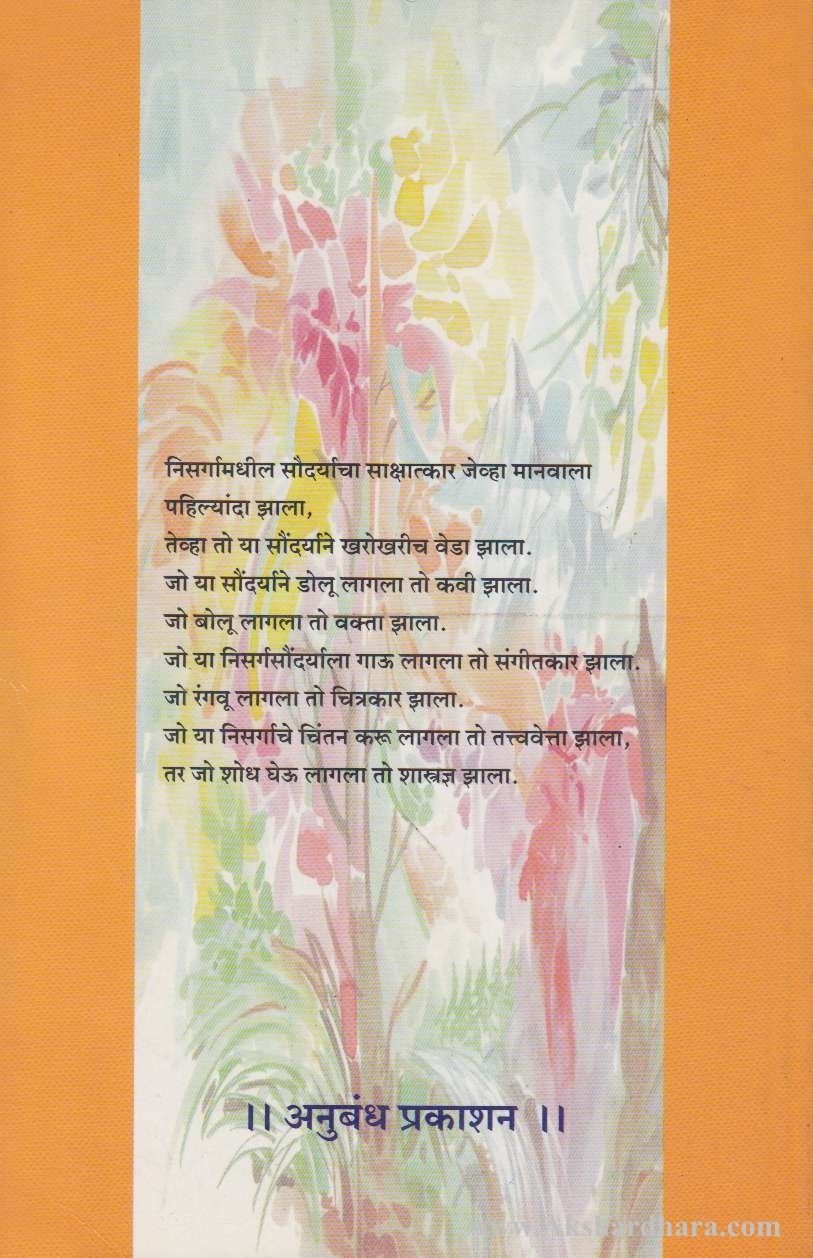 निसर्गामधील सौदर्याचा साक्षात्कार जेव्हा मानवाला
पहिल्यांदा झाला,
तेव्हा तो या सौंदर्याने खरोखरीच वेडा झाला.
जो या सौंदर्याने डोलू लागला तो कवी झाला.
जो बोलू लागला तो वक्ता झाला.
जो या निसर्गसौंदर्याला गाऊ लागला तो संगीतकार झाला.
जो रंगवू लागला तो चित्रकार झाला.
जो या निसर्गाचे चिंतन करू लागला तो तत्त्ववेत्ता झाला,
तर जो शोध घेऊ लागला तो शास्त्रज्ञ झाला.
।। अनुबंध प्रकाशन ।।
www.akshardhara.com